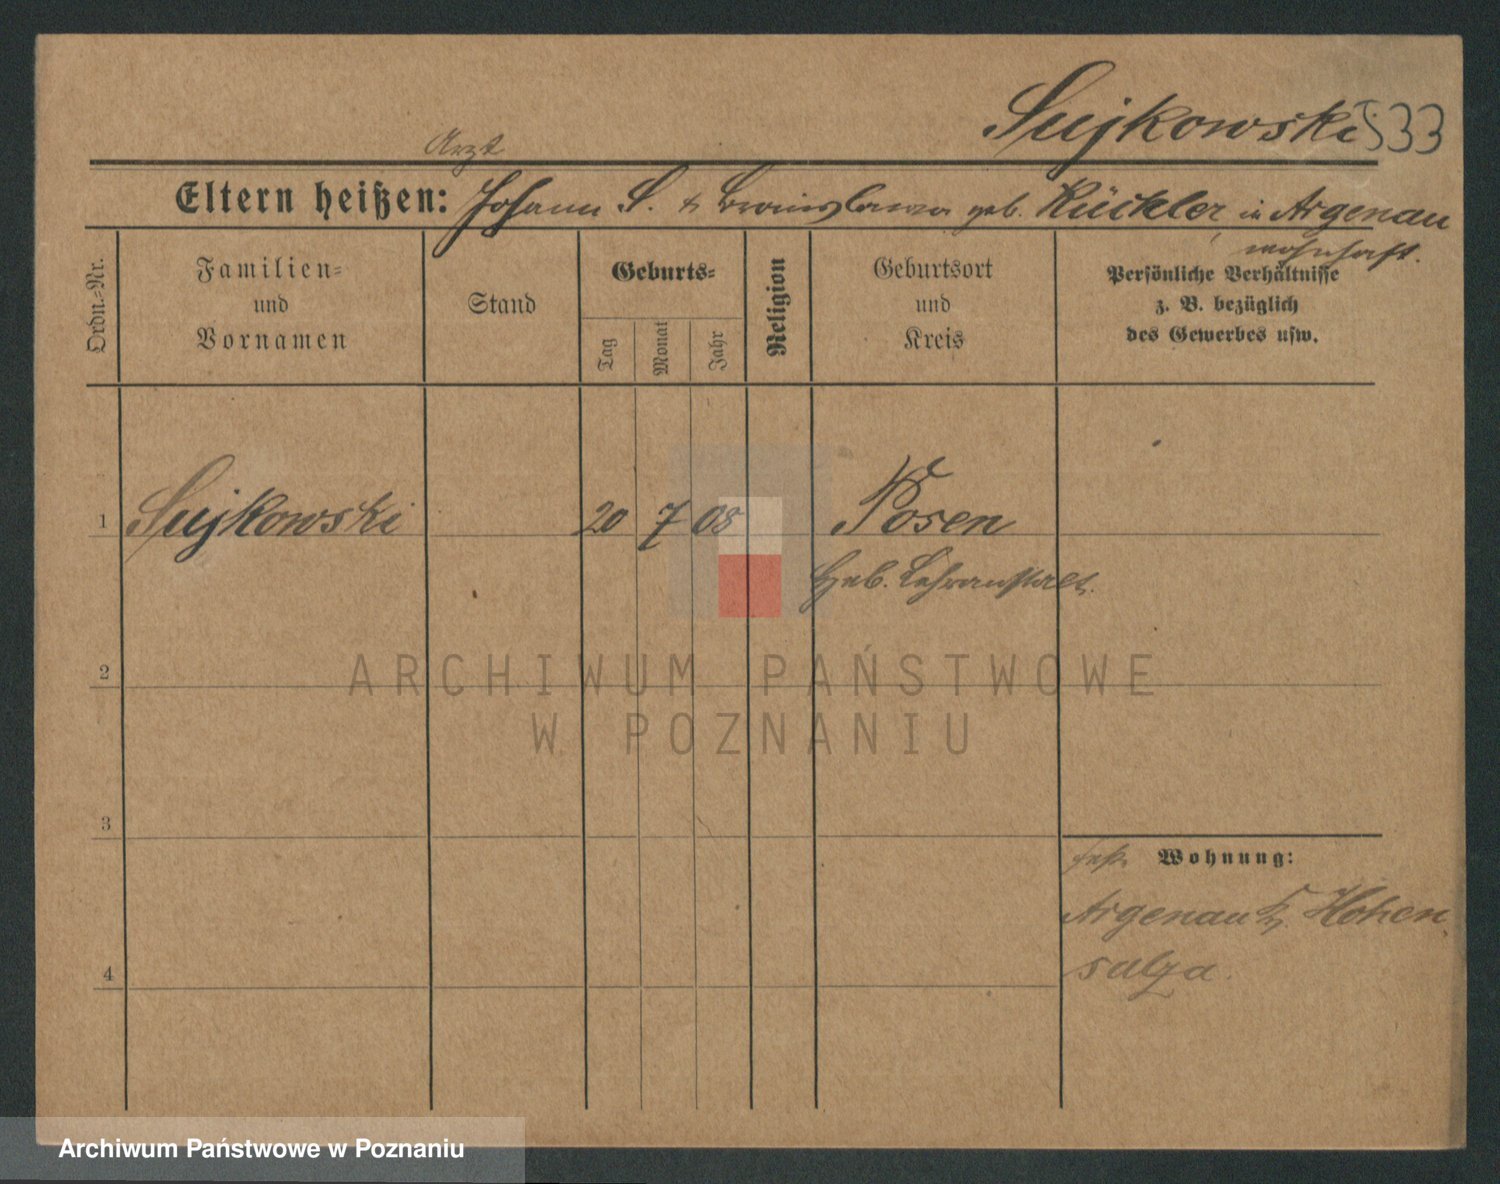 Sujkowski 533
Arzt
Eltern heißen: Johann S. & Bronislawa geb. Rückler in Argenau
wohnhaft.
Ordn.-Nr.
Familien-
und
Vornamen
Stand
Geburts-
Tag
Monat
Jahr
Religion
Geburtsort
und
Kreis
Persönliche Verhältnisse
z. B. bezüglich
des Gewerbes usw.
1 Sujkowski 20 7 08 Posen
Heb. Lehranstalt.
ARCHIWUM PAŃSTWOWE
W POZNANIU
2
3
Wohnung:
Argenau Kr. Hohen-
salza.
4
Archiwum Państwowe w Poznaniu